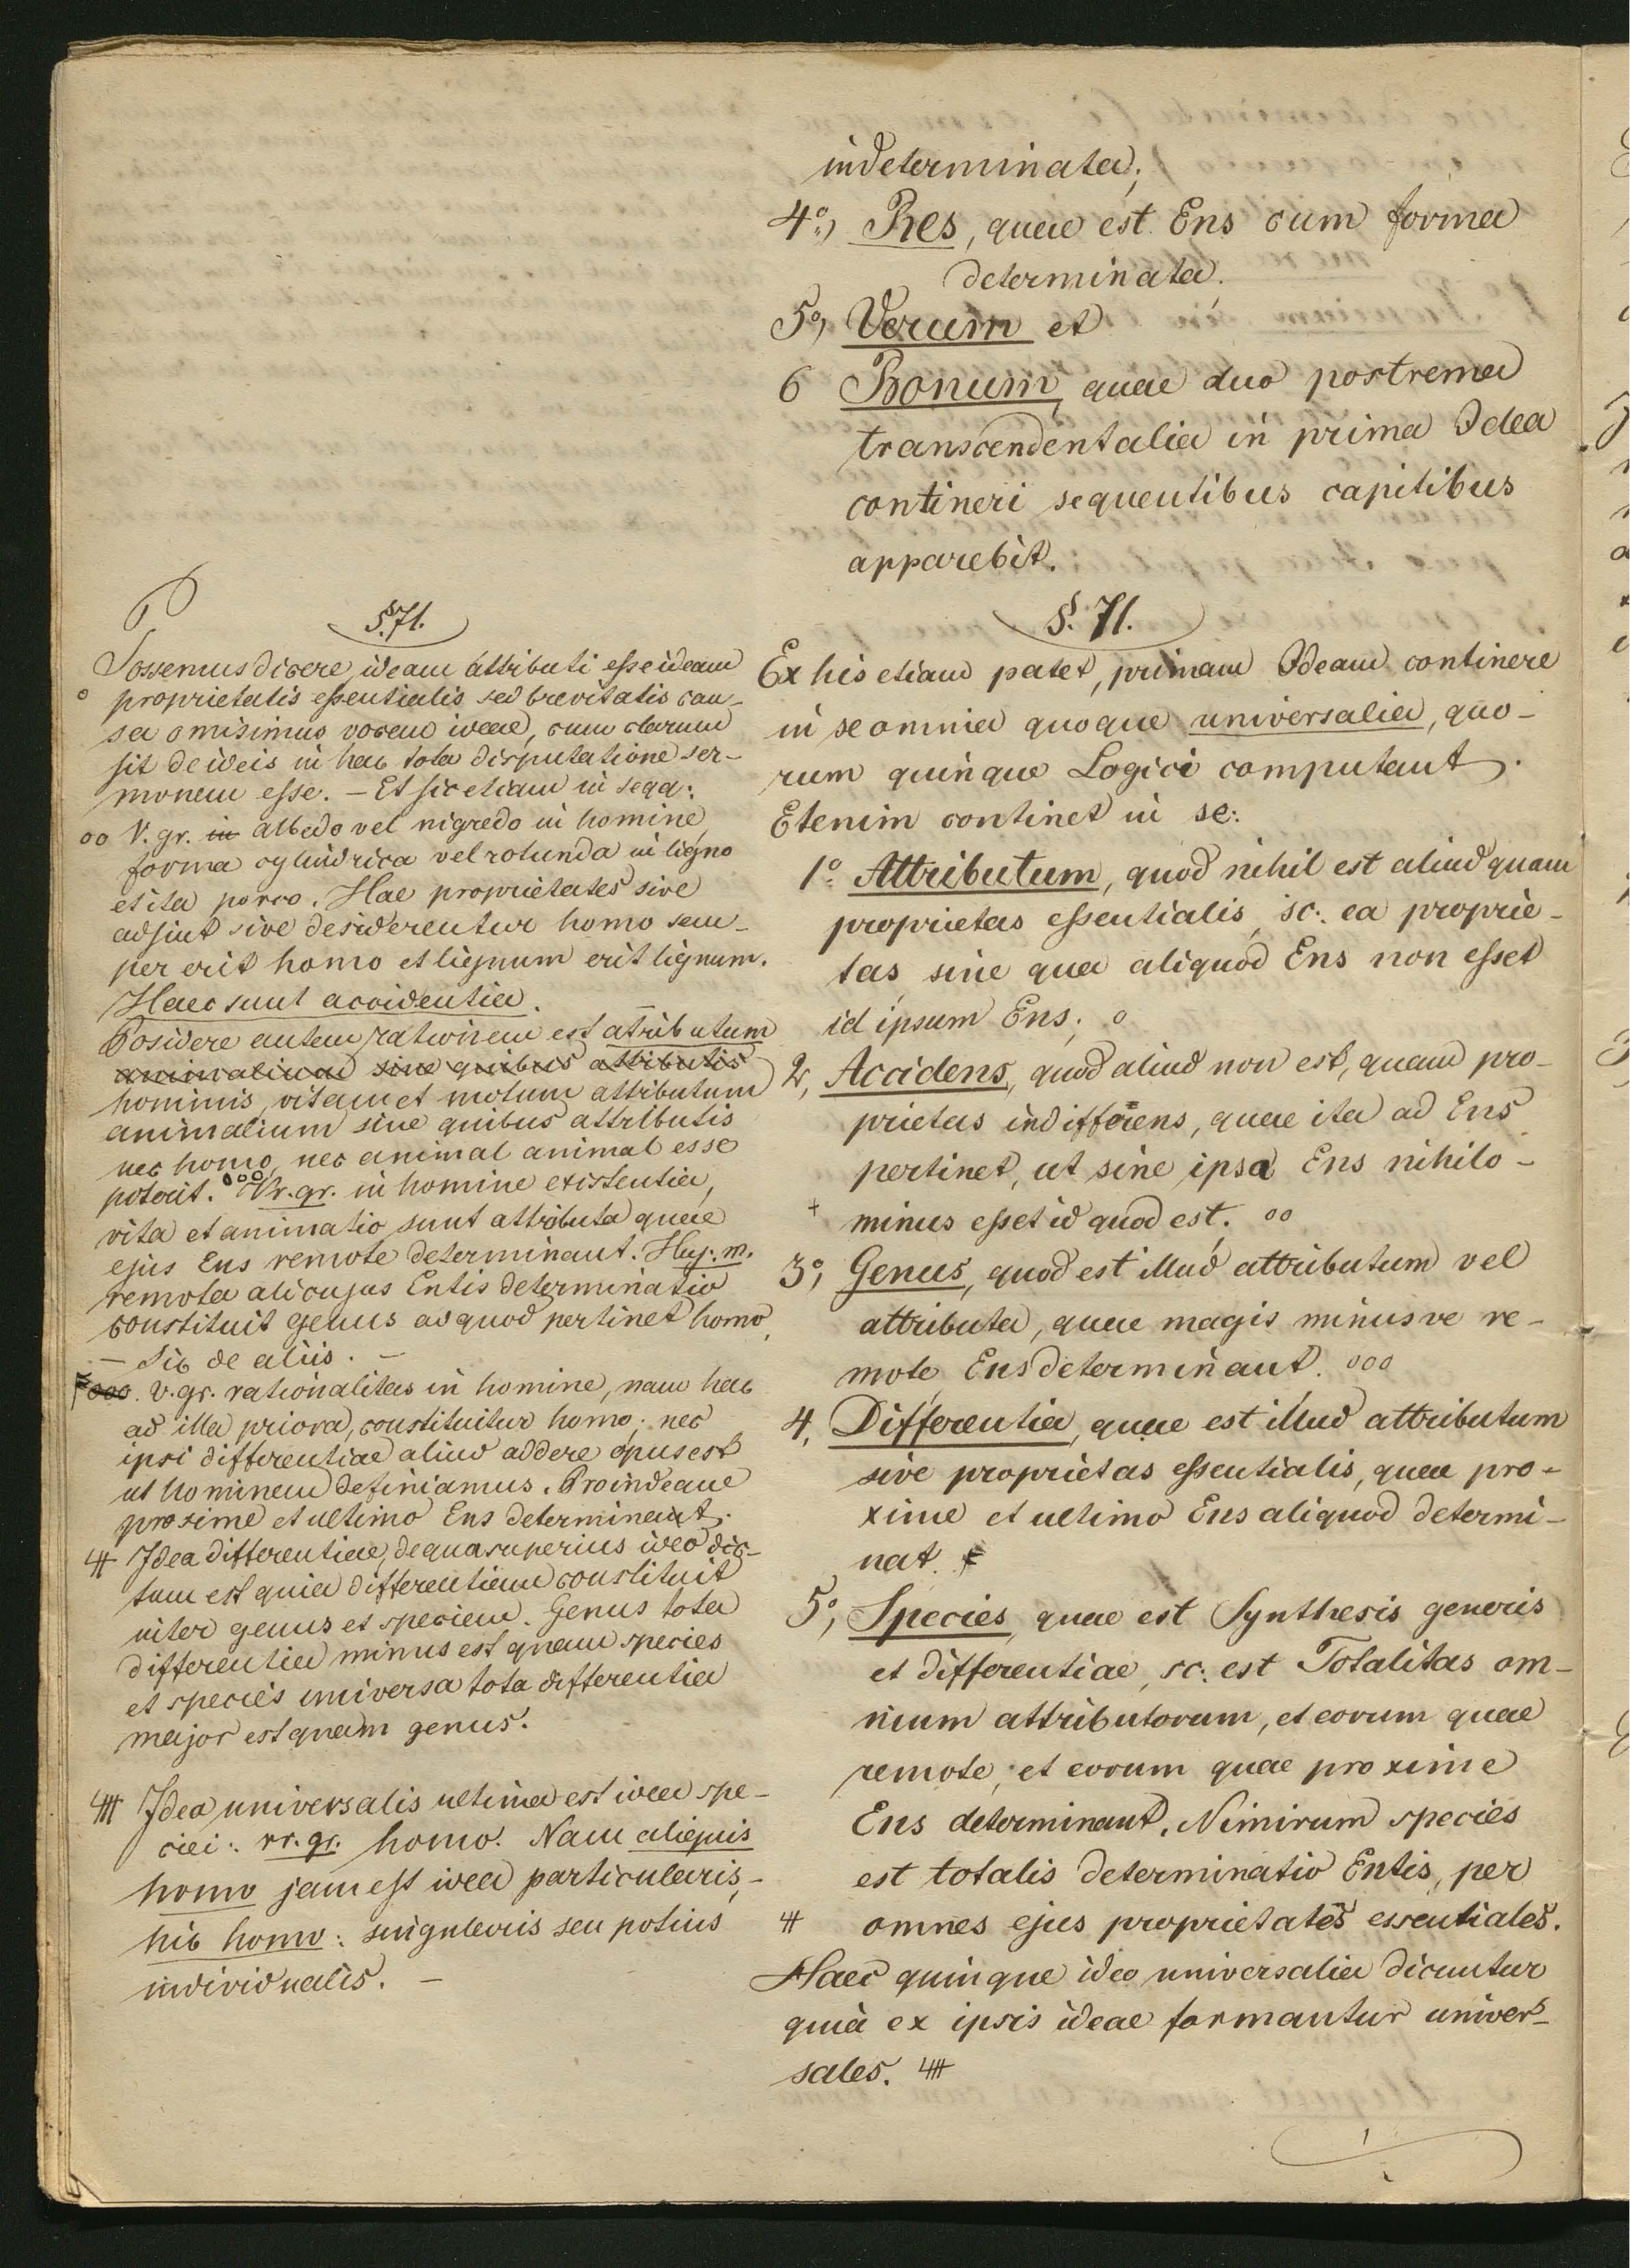 indeterminata;
4º, Res, quae est Ens cum forma
determinata.
5º, Verum et
6 Bonum, quae duo postrema
transcendentalia in prima Idea
contineri sequentibus capitibus
apparebit.
§. 71.
Ex his etiam patet, primam Ideam continere
in se omnia quoque universalia, quo-
rum quinque Logici computant.
Etenim continet in se:
1º Attributum, quod nihil est aliud quam
proprietas essentialis, sc: ea proprie-
tas sine qua aliquod Ens non esset
id ipsum Ens; o
2, Accidens, quod aliud non est, quam pro-
prietas indifferens, quae ita ad Ens
pertinet, ut sine ipsa Ens nihilo-
+ minus esset id quod est; oo
3º, Genus, quod est illud attributum vel
attributa, quae magis minusve re-
mote Ens determinant. ooo
4, Differentia, quae est illud attributum
sive proprietas essentialis, quae pro-
xime et ultimo Ens aliquod determi-
nat.
5º, Species, quae est Synthesis generis
et differentiae, sc: est Totalitas om-
nium attributorum, et eorum quae
remote, et eorum quae proxime
Ens determinant. Nimirum species
est totalis determinatio Entis, per
omnes ejus proprietates essentiales.
Haec quinque ideo universalia dicuntur
quia ex ipsis ideae formantur univer-
sales.
§. 71.
Possemus dicere, ideam attributi esse ideam
o proprietatis essentialis sed brevitatis cau-
sa omisimus vocem ideae, cum clarum
sit de ideis in hac tota disputatione ser-
monem esse. - Et sic etiam in seqq:
oo V. gr. in albedo vel nigredo in homine,
forma cylindrica vel rotunda in ligno
et ita porro. Hae proprietates sive
adsint sive desiderentur homo sem-
per erit homo et lignum erit lignum.
Haec sunt accidentia.
Posidere autem rationem est atributum
animalium sine quibus attributis
hominis, vitam et motum attributum
animalium sine quibus attributis
nec homo, nec animal animal esse
poterit. ooo Vr. gr. in homine existentia,
vita et animatio sunt attributa quae
ejus Ens remote determinant. Huj. m.
remota alicujus Entis determinatio
constituit genus ad quod pertinet homo,
- Sic de aliis. -
ooo. v. gr. rationalitas in homine, nam hac
ad illa priora, constituitur homo; nec
ipsi differentiae aliud addere opus est
ut hominem definiamus. Proindeque
proxime et ultimo Ens determinat.
Idea differentiae, de qua superius ideo dic-
tum est quia differentiam constituit
inter genus et speciem. Genus tota
differentia minus est quam species
et species universa tota differentia
major est quam genus.
Idea universalis ultima est idea spe-
ciei: vr. gr. homo. Nam aliquis
homo jam est idea particularis, -
hic homo: singularis seu potius
individualis. -